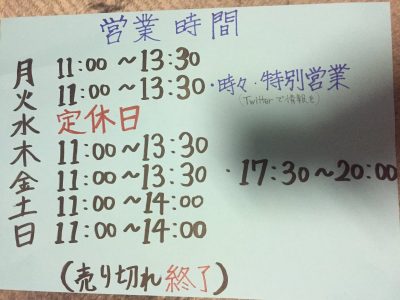 営業時間
月 11:00～13:30
火 11:00～13:30・時々・特別営業
(Twitterで情報を)
水 定休日
木 11:00～13:30
金 11:00～13:30 ・17:30～20:00
土 11:00～14:00
日 11:00～14:00
(売り切れ終了)